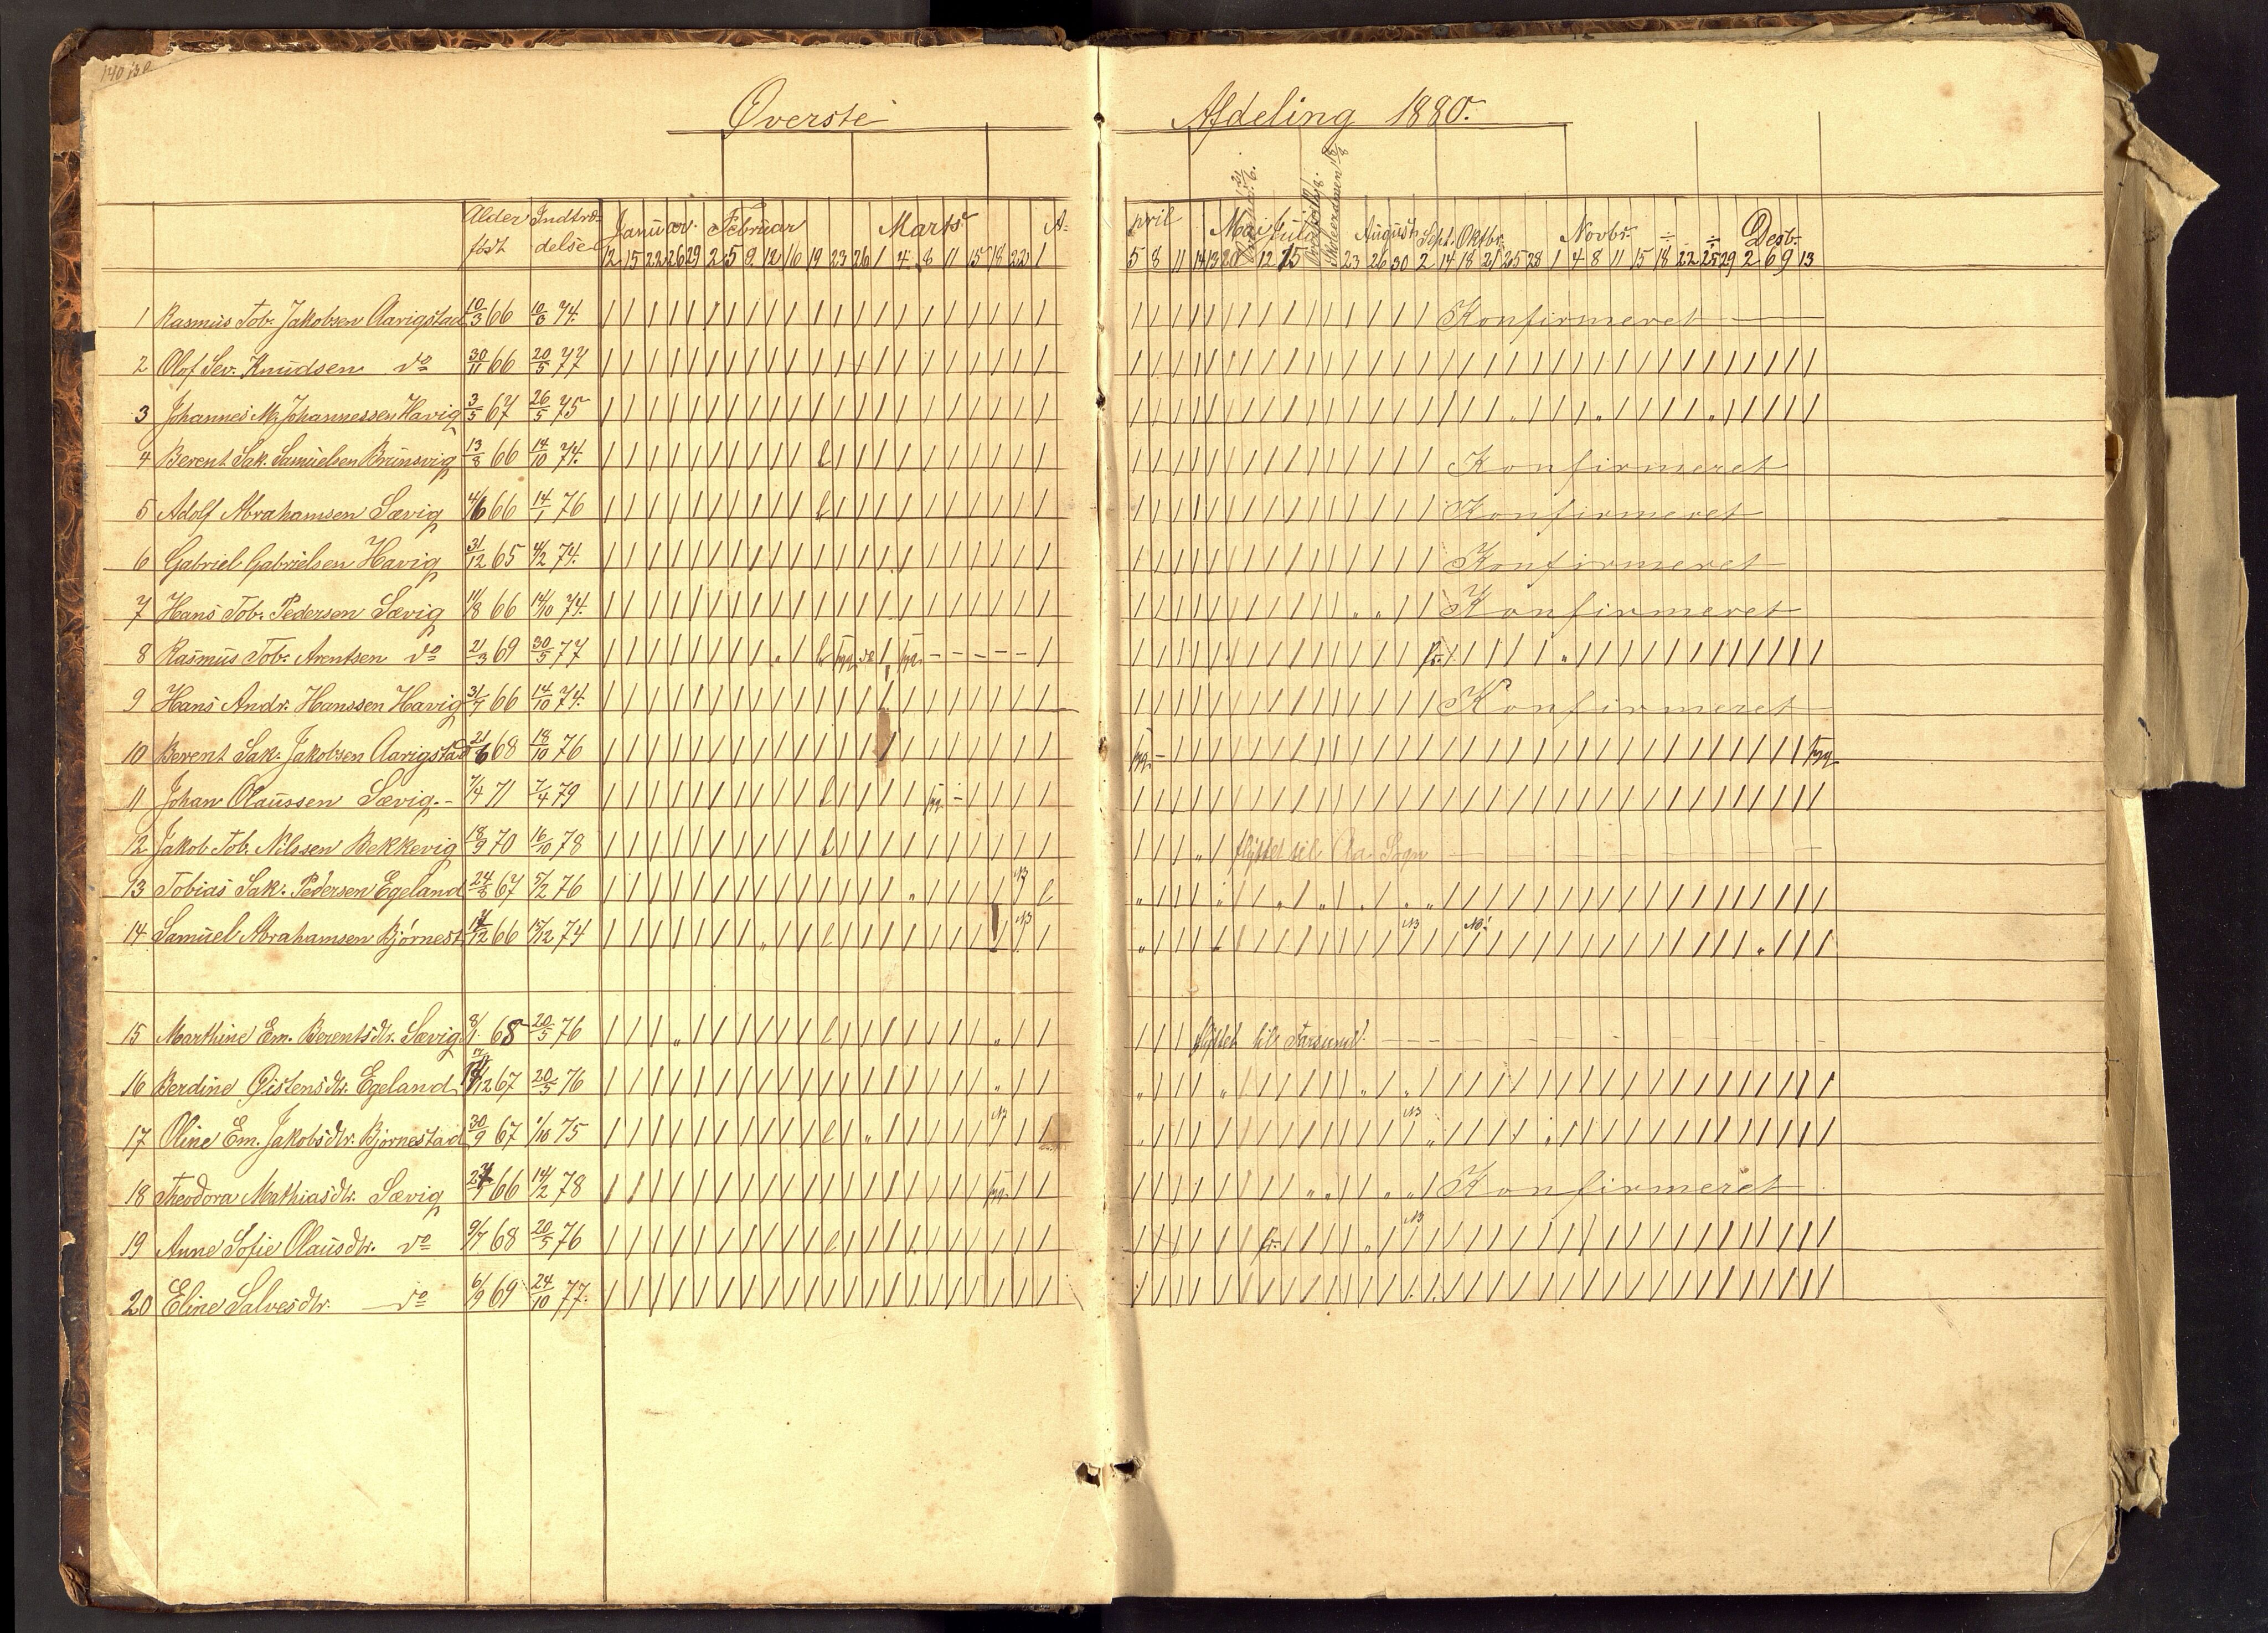 140
Øverste Afdeling 1880.
Alder Indtræ- Januar. Februar Marts A- pril Mai Juli August Sept. Oktbr. Novbr. ÷ ÷ Desb.
født delse 12 15 22 26 29 2 5 9 12 16 19 23 26 1 4 8 11 15 18 22 1 5 8 11 14 13 20 12 15 23 26 30 2 14 18 21 25 28 1 4 8 11 15 18 22 25 29 2 6 9 13
1 Rasmus Tob. Jakobsen Aarigstad 10/3 66 10/3 74. Konfirmeret
2 Olof Sev. Knudsen do 30/11 66 20/5 77
3 Johannes M. Johannessen Havig 3/5 67 26/5 75
4 Berent Sak. Samuelsen Brunsvig 13/8 66 14/10 74. l Konfirmeret
5 Adolf Abrahamsen Sævig 4/6 66 14/1 76 l Konfirmeret
6 Gabriel Gabrielsen Havig 31/12 65 4/2 74. Konfirmeret
7 Hans Tob. Pedersen Sævig 11/8 66 14/10 74. Konfirmeret
8 Rasmus Tob. Arentsen do 2/3 69 30/5 77 l syg do syg - - - - - fr.
9 Hans Andr. Hanssen Havig 31/7 66 14/10 74. Konfirmeret
10 Berent Sak. Jakobsen Aarigstad 21/6 68 18/10 76 syg - syg
11 Johan Olaussen Sævig. - 7/4 71 7/4 79 l syg -
12 Jakob Tob. Nilssen Bekkevig 18/9 70 16/10 78 l flyttet til Aa Sogn
13 Tobias Sak. Pedersen Egeland 24/8 67 5/2 76 l
14 Samuel Abrahamsen Bjørnest. 66 15/12 74 l
15 Marthine Em. Berentsdtr. Sævig 8/1 68 20/5 76 l flyttet til Farsund.
16 Berdine Øistensdtr. Egeland 67 20/5 76
17 Oline Em. Jakobsdtr. Bjørnestad 30/9 67 1/10 75 l
18 Theodora Mathiasdtr. Sævig 66 14/2 78 syg. Konfirmeret
19 Anne Sofie Olausdtr. do 9/7 68 20/5 76 l fr.
20 Eline Salvesdtr. do 6/9 69 24/10 77.